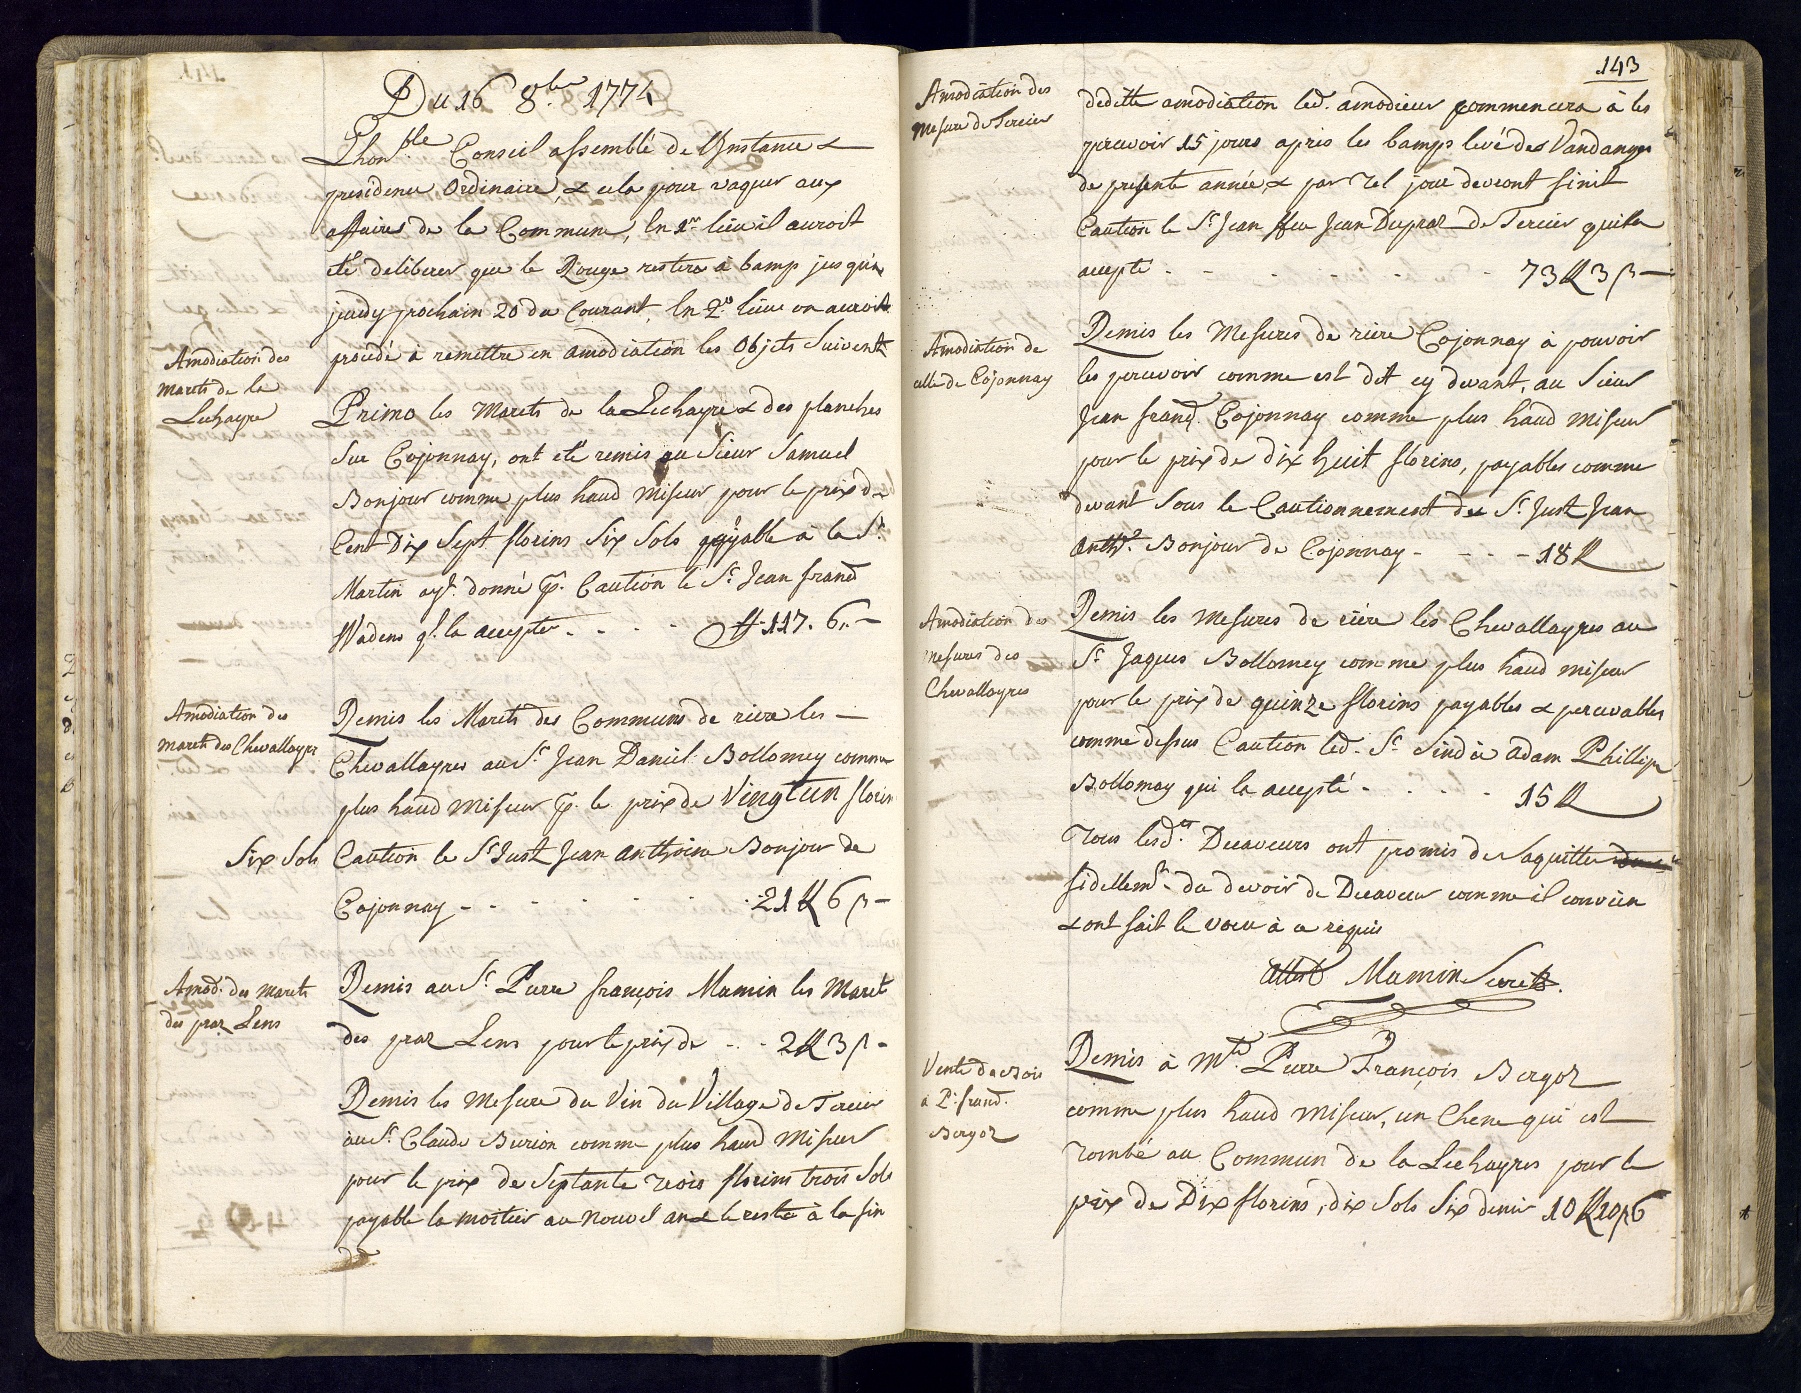 Du 16 8.bre 1774
Lhon.ble Conseil assemblé de l'Instance &
presidence Ordinaire, & cela pour vaquer aux
affaires de la Commune, En 1er lieu il auroit
été deliberer que le Rouge restera à bamp jusqu'a
jeudy prochain 20 du Courant, En 2.e lieu on auroit
procédé à remettre en amodiation les Objets Suivents
Amodiation des
Marets de la
Lechayre
Primo les Marets de la Lechayre & des planches
Sur Cojonnay, ont eté remis au Sieur Samuel
Bonjour comme plus haud Miseur pour le prix de
Cent Dix Sept florins Six Sols payable à la S.t
Martin ayt. donné p. Caution le Sr. Jean frand
Wadens qt. la accepter - - - - ff 117. 6.. -
Amodiation des
marets des Chevallayres
Remis les Marets des Communs de riere les -
Chevallayres au Sr. Jean Daniel Bollomey comme
plus haud Miseur p. le prix de Vingtun florins
Six Sols Caution le Sr Just Jean Anthoine Bonjour de
Cojonnay - - - - - - - 21 ff 6 ß -
Amod. des Marets
des praz Lens
Remis au Sr. Pierre françois Mamin les Maret
des praz Lens pour le prix de - - 2 ff 3 ß -
Remis les Mesure du Vin du Village de Tercier
au Sr. Claude Burion comme plus haud Miseur
pour le prix de Septante trois florins trois Sols
payable la moitier au Nouvel an & le reste à la fin
de
143
Amodiation des
Mesure de Tercier
deditte amodiation led. amodieur commencera à les
percevoir 15 jours apres les bamps levé des Vandanges
de presente année, & par tel jour devront finir
Caution le Sr. Jean feu Jean Dupraz de Tercier qui la
accepté - - - - - - - 73 ff 3 ß -
Amodiation de
celle de Cojonnay
Remis les Mesures de riére Cojonnay à pouvoir
les percevoir comme est dit cy devant, au Sieur
Jean frand. Cojonnay comme plus haud Miseur
pour le prix de dix huit florins, payables comme
devant Sous le Cautionnement du Sr. Just Jean
Anthe. Bonjour de Cojonnay - - - - 18 ff
Amodiation des
mesures des
Chevallayres
Remis les Mesures de riére les Chevallayres au
Sr. Jaques Bollomey comme plus haud miseur
pour le prix de quinze florins payables & percevables
comme dessus Caution led. Sr. Sindic Adam Phillipe
Bollomey qui la accepté - - - - - 15 ff
Tous lesd.ts Decaveurs ont promis de Saquitter
fidellemt. du devoir de Decaveur comme il convien
& ont fait le voeu à ce requis
Attesté Mamin Secret.
Vente de Bois
à P. frand.
Bergoz
Remis à Mtre. Pierre François Bergoz
comme plus haud Miseur, un Chene qui est
tombé au Commun de la Lechayres pour le
prix de Dix florins, dix Sols Six denier 10 ff 10 ß 6